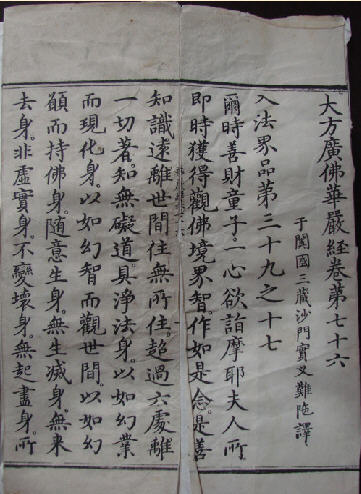 大方廣佛華嚴經卷第七十六
于闐國三藏沙門實叉難陁譯
入法界品第三十九之十七
爾時善財童子。一心欲詣摩耶夫人所。
即時獲得觀佛境界智。作如是念。是善
知識遠離世間住無所住。超過六處離
一切著。知無礙道。具淨法身。以如幻業
而現化身。以如幻智而觀世間。以如幻
願而持佛身。隨意生身。無生滅身。無來
去身。非虛實身。不變壞身。無起盡身。所